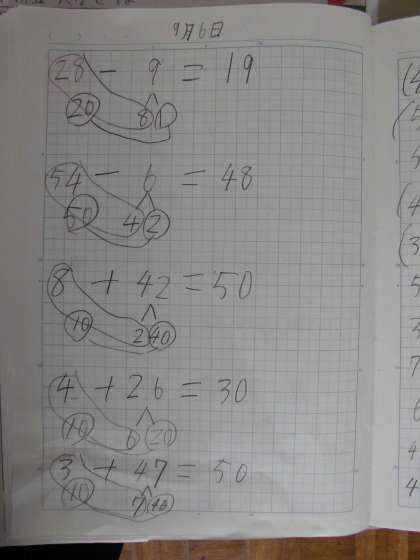 9月6日
28 - 9 = 19
20 8 1
54 - 6 = 48
50 4 2
8 + 42 = 50
10 2 40
4 + 26 = 30
10 6 20
3 + 47 = 50
10 7 40